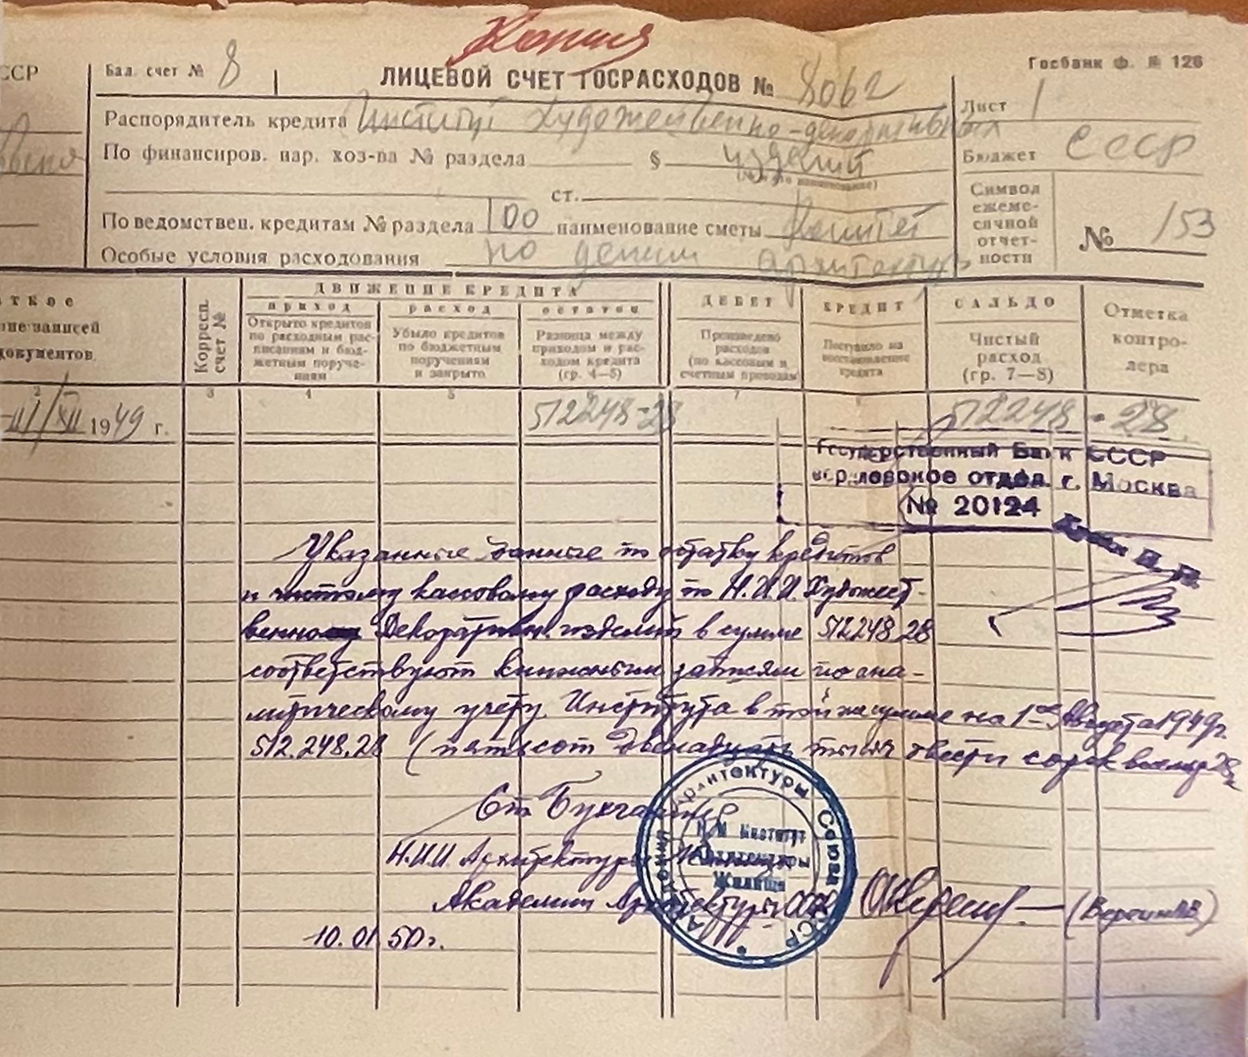 Копия
ССР
Бал. счет № 8
ЛИЦЕВОЙ СЧЕТ ГОСРАСХОДОВ № 8062
Госбанк ф. № 126
Лист 1
Распорядитель кредита Институт художественно-декоративных
изделий
По финансиров. нар. хоз-ва № раздела § 
Бюджет СССР
ст.
Символ
ежеме-
сячной
отчет-
ности
№ 153
По ведомствен. кредитам № раздела 100 наименование сметы Комитет
Особые условия расходования по делам архитектуры
ДВИЖЕНИЕ КРЕДИТА
ДЕБЕТ
КРЕДИТ
САЛЬДО
Отметка
контро-
лера
записей
документов
Корресп.
счет №
приход
расход
остаток
Открыто кредитов
по расходным рас-
писаниям и бюд-
жетным поруче-
ниям
Убыло кредитов
по бюджетным
поручениям
и закрыто
Разница между
приходом и рас-
ходом кредита
(гр. 4—5)
Произведено
расходов
(по кассовым и
счетным проводам)
Поступило на
восстановление
кредита
Чистый
расход
(гр. 7—8)
2 3 4 5 7
XII 1949 г. 512248-28 512248-28
Государственный Банк СССР
отдел. г. Москва
№ 20124
Указанные данные по остатку кредитов
и чистому кассовому расходу по Н.И.И. Художест-
венно Декоративн. изделий в сумме 512248,28
соответствуют книжным записям по ана-
литическому учету Института в той же сумме на 1ое Августа 1949г
512.248,28 (пятьсот двенадцать тысяч двести сорок восемь 28
Ст Бухгалтер
Н.И.И. Архитектуры
Академии Архитектуры СССР (Верещ
10. 01 50г.
Академия Архитектуры Союза ССР
Н.И. Институт
Архитектуры
Жилища